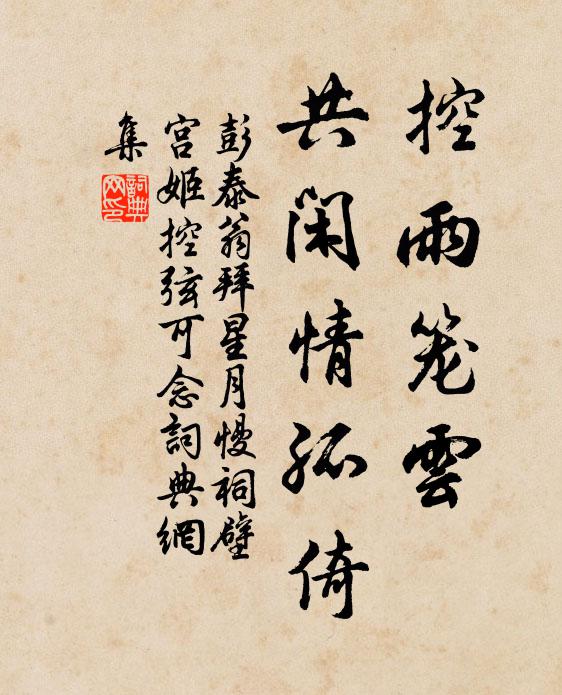 控雨笼雲
共閑情孤倚
彭泰翁拜星月慢祠壁
宫姬控弦可念詞典網
集
詞典
网印